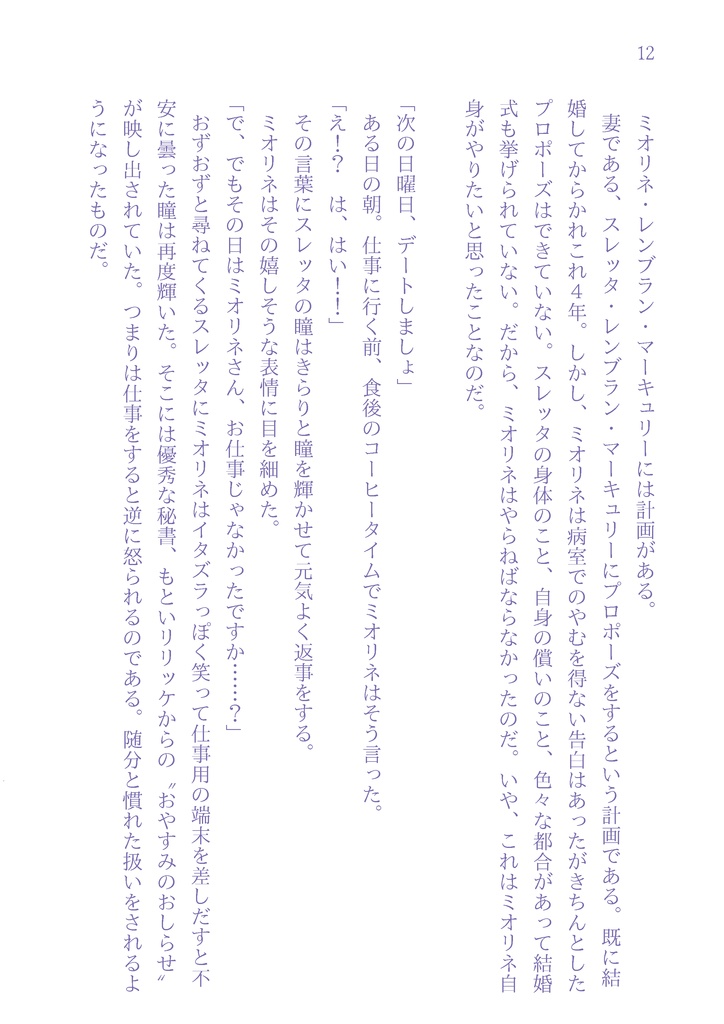 12
ミオリネ・レンブラン・マーキュリーには計画がある。
妻である、スレッタ・レンブラン・マーキュリーにプロポーズをするという計画である。既に結
婚してからかれこれ４年。しかし、ミオリネは病室でのやむを得ない告白はあったがきちんとした
プロポーズはできていない。スレッタの身体のこと、自身の償いのこと、色々な都合があって結婚
式も挙げられていない。だから、ミオリネはやらねばならなかったのだ。いや、これはミオリネ自
身がやりたいと思ったことなのだ。
「次の日曜日、デートしましょ」
ある日の朝。仕事に行く前、食後のコーヒータイムでミオリネはそう言った。
「え！？　は、はい！！」
その言葉にスレッタの瞳はきらりと瞳を輝かせて元気よく返事をする。
ミオリネはその嬉しそうな表情に目を細めた。
「で、でもその日はミオリネさん、お仕事じゃなかったですか……？」
おずおずと尋ねてくるスレッタにミオリネはイタズラっぽく笑って仕事用の端末を差しだすと不
安に曇った瞳は再度輝いた。そこには優秀な秘書、もといリリッケからの〝おやすみのおしらせ〟
が映し出されていた。つまりは仕事をすると逆に怒られるのである。随分と慣れた扱いをされるよ
うになったものだ。